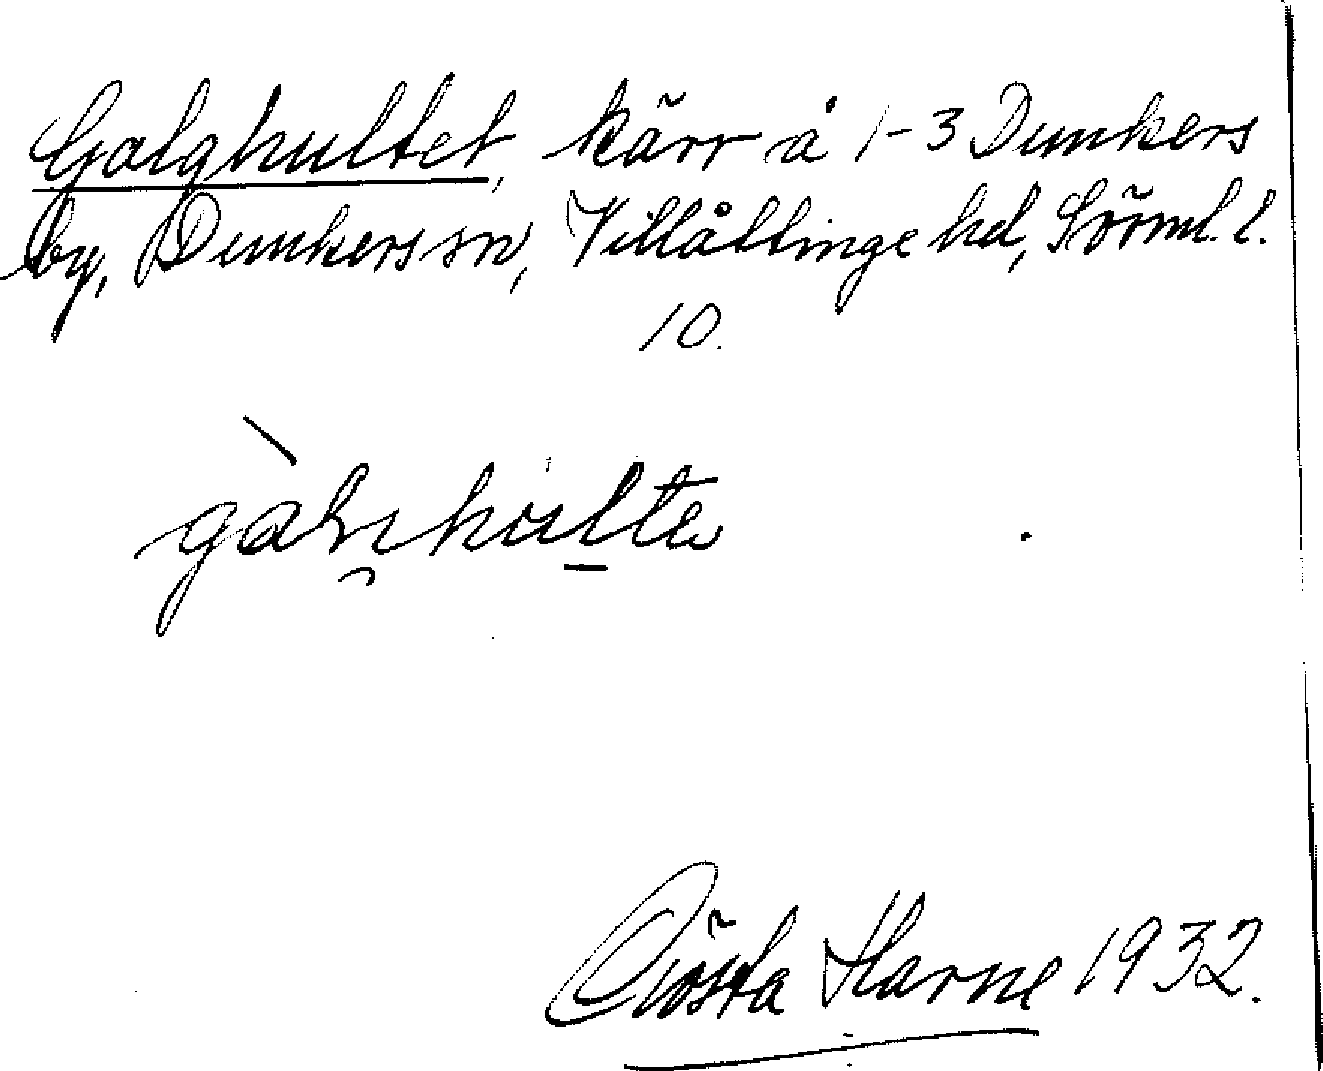 Galghultet, kärr å 1-3 Dunkers
by, Dunkers sn, Villåttinge hd, Sörml. l.
10.
Gösta Harne 1932.